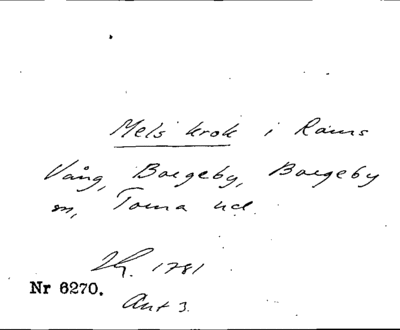 Mels krok i Rams
Vång, Borgeby, Borgeby
sn, Torna hd.
1781
Nr 6270.
Akt 3.